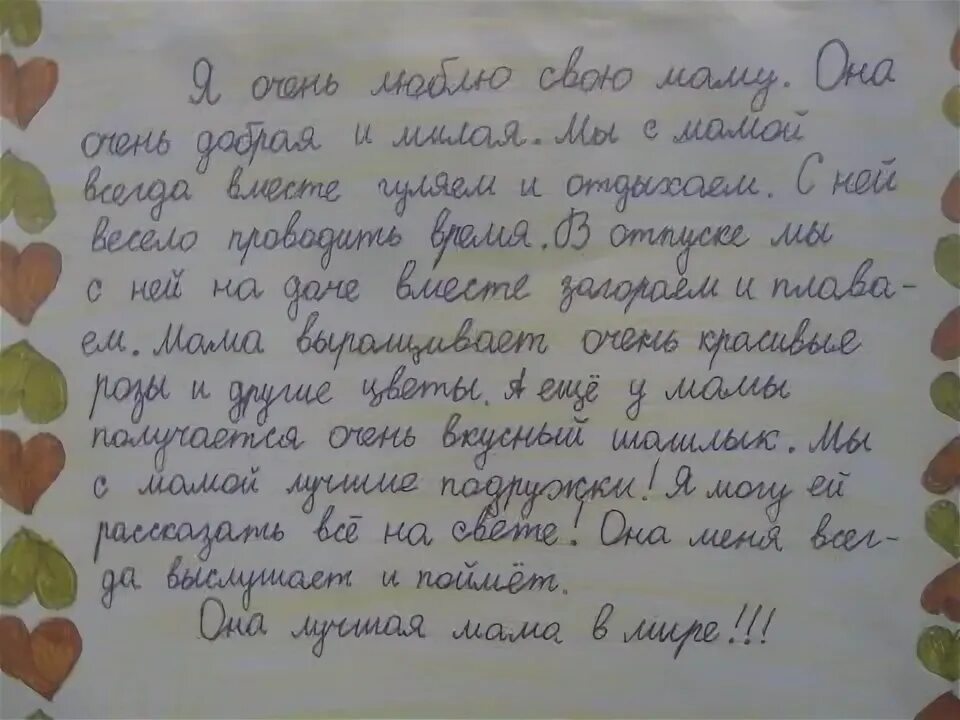 Я очень люблю свою маму. Она
очень добрая и милая. Мы с мамой
всегда вместе гуляем и отдыхаем. С ней
весело проводить время. В отпуске мы
с ней на даче вместе загораем и плава-
ем. Мама выращивает очень красивые
розы и другие цветы. А ещё у мамы
получается очень вкусный шашлык. Мы
с мамой лучшие подружки! Я могу ей
рассказать всё на свете! Она меня всег-
да выслушает и поймёт.
Она лучшая мама в мире!!!